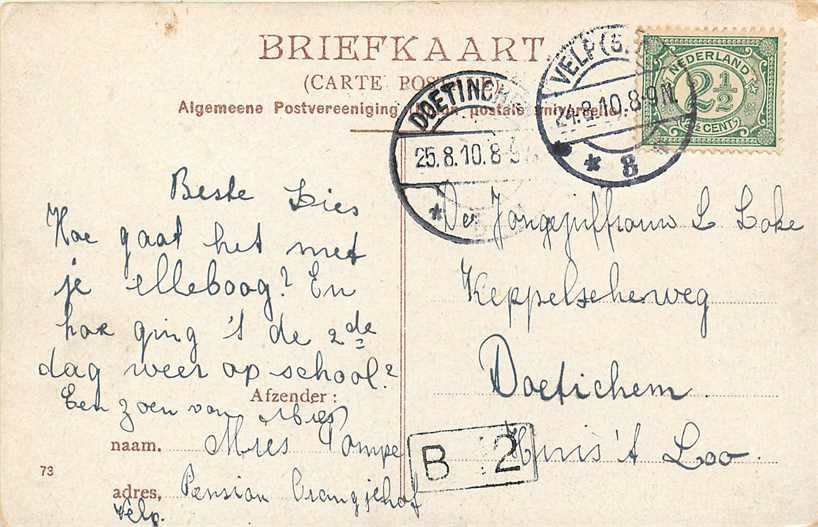 BRIEFKAART
(CARTE POSTALE)
Algemeene Postvereeniging (Union postale universelle)
DOETINCHEM
25.8.10.8-9V.
VELP (
24.8.10.8-9N.
8
NEDERLAND
2½
CENT
Beste Lies
Hoe gaat het met
je elleboog? En
hoe ging 't de 2de
dag weer op school?
Een zoen van Mies
Afzender:
naam. Mies Pompe
adres, Pension Orangjehof
Velp.
73
De Jongejuffrouw L Loke
Keppelscheweg
Doetichem
Huis 't Loo
B 2